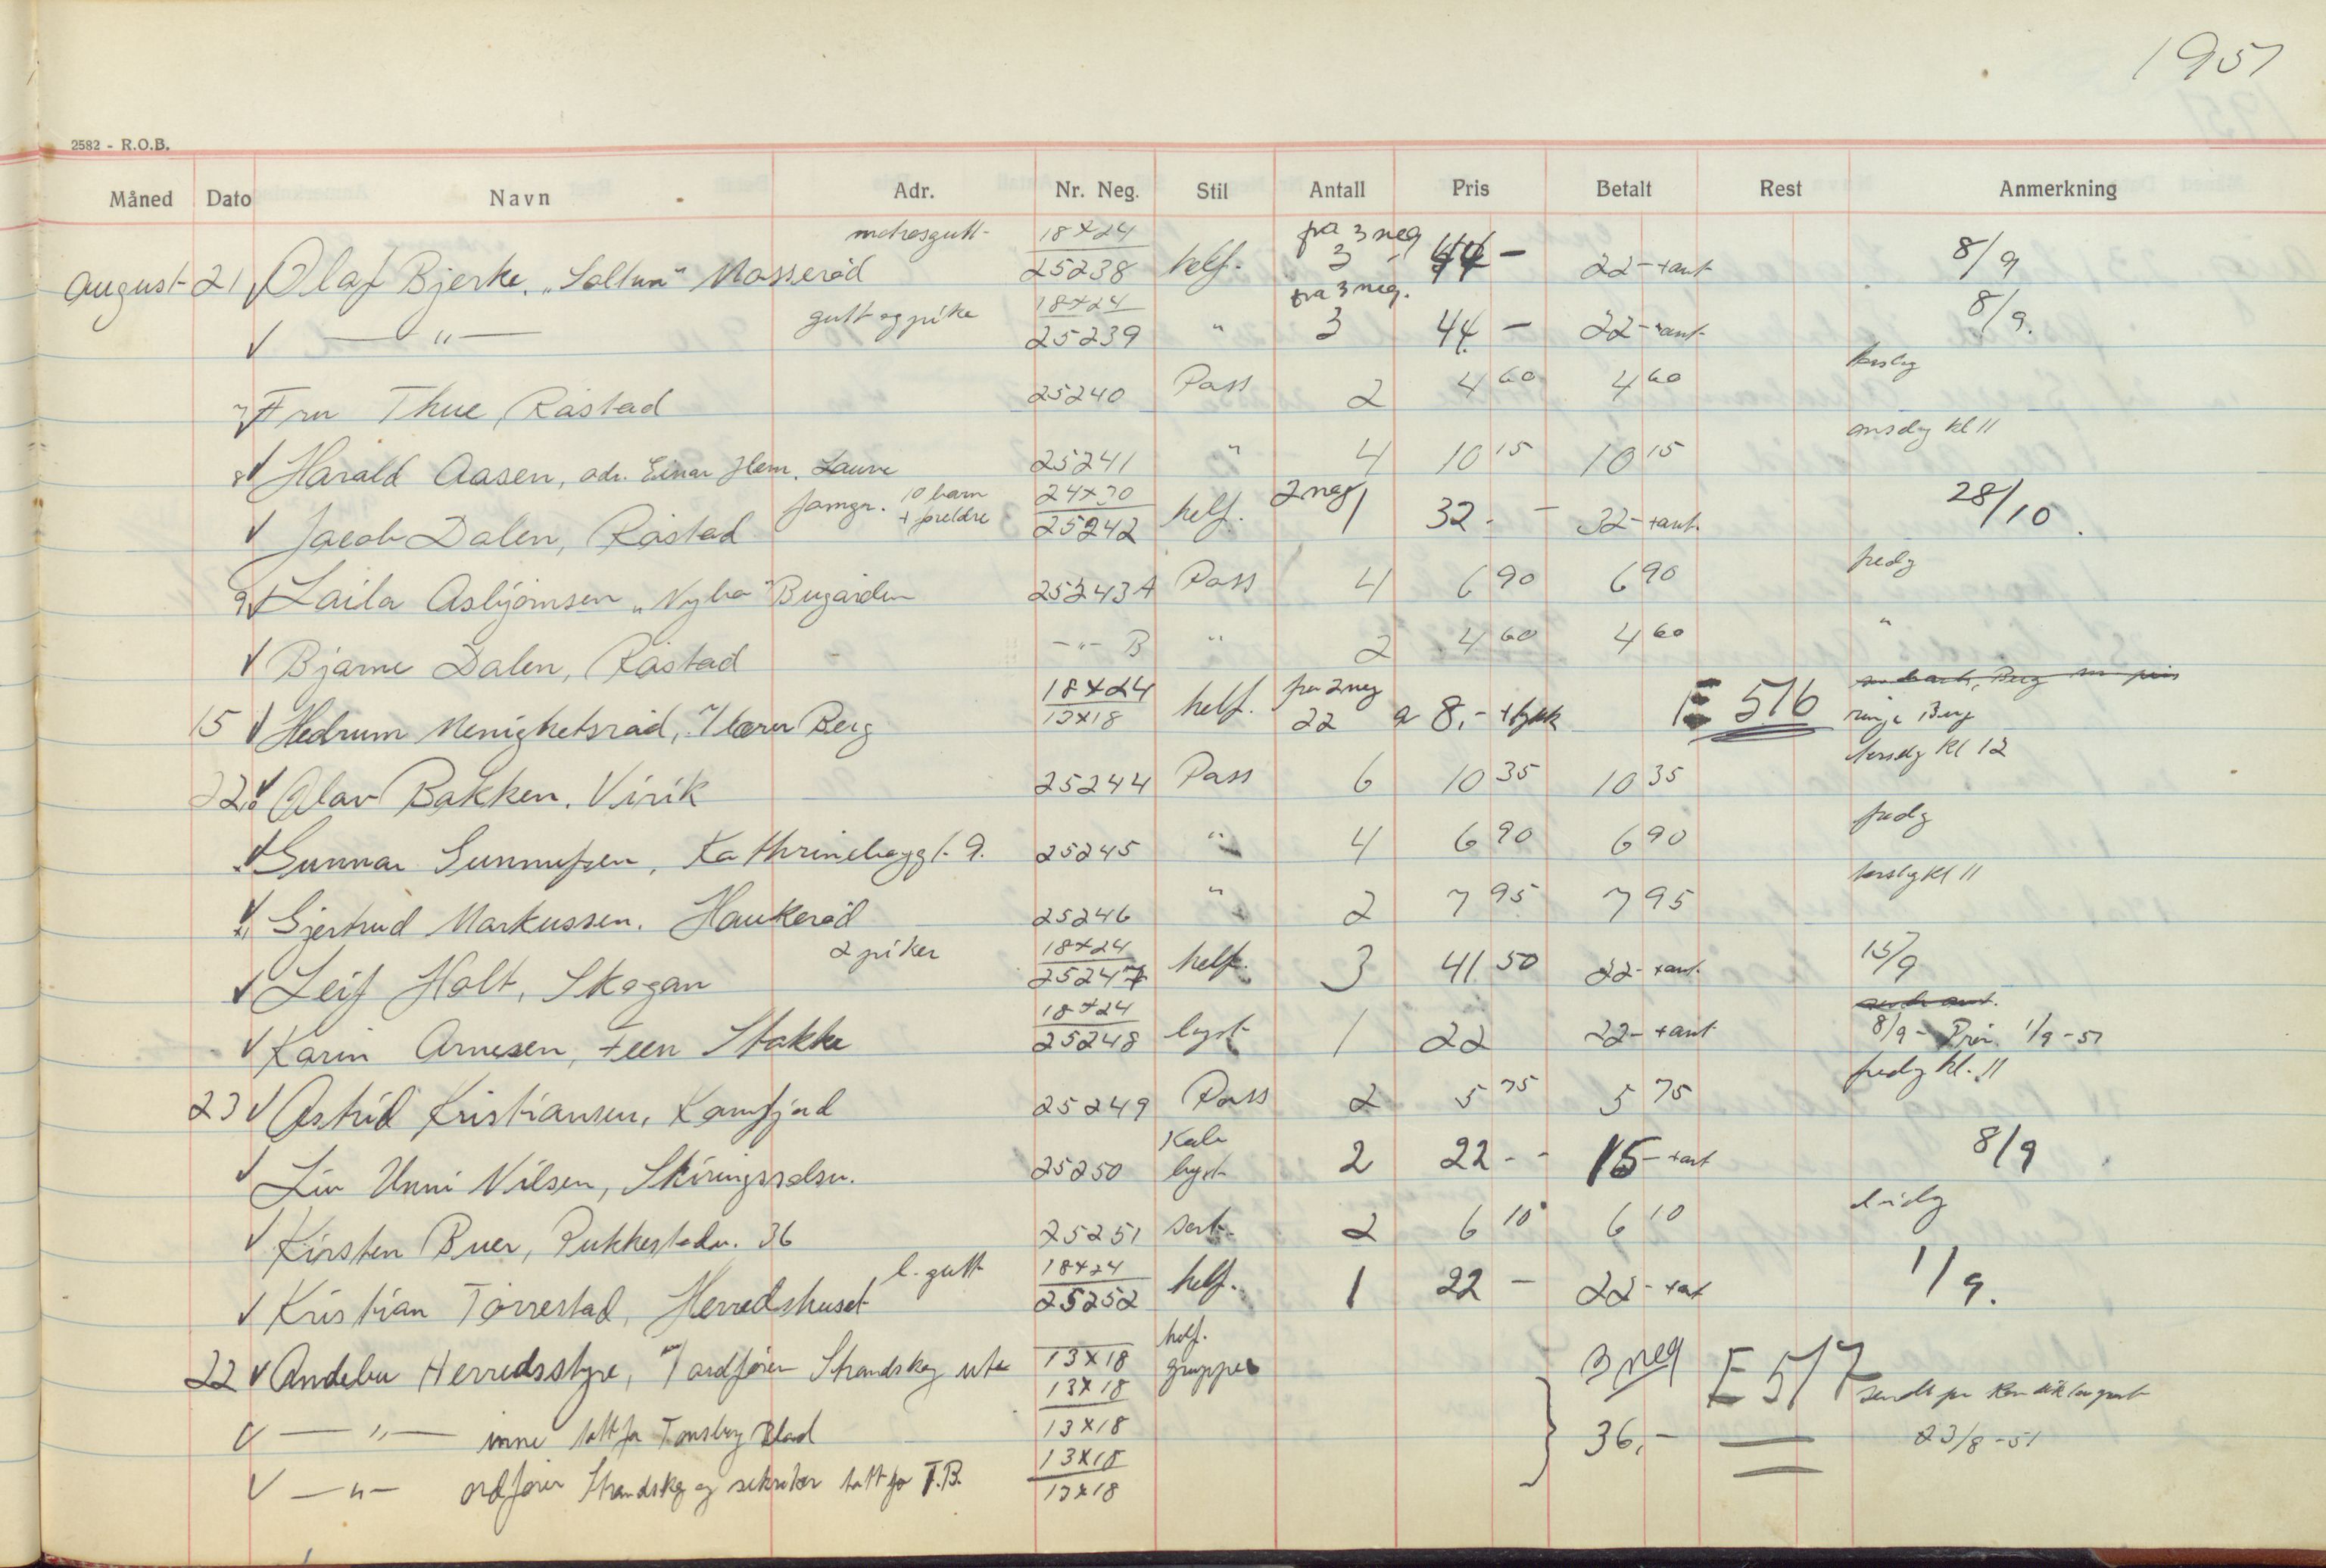 1951
2582 - R.O.B.
Måned Dato Navn Adr. Nr. Neg. Stil Antall Pris Betalt Rest Anmerkning
matrosgutt 18x24 fra 3 neg
August 21 Olaf Bjerke, "Soltun" Mosserød 25238 helf. 3 44 - 22 - + ant 8/9
gutt og pike 18x24 fra 3 neg.
— " — 25239 " 3 44 - 22 - + ant 8/9.
7 Fru Thue, Råstad 25240 Pass 2 4 60 4 60
8 Harald Aasen, adr. Einar Hem, Lauve 25241 " 4 10 15 10 15 onsdg kl 11
famgr. 10 barn + foreldre 24x30 2 neg
Jacob Dalen, Råstad 25242 helf. 1 32. - 32 - + ant. 28/10.
9 Laila Asbjørnsen "Nybo" Bugården 25243 A Pass 4 6 90 6 90 fredg
Bjarne Dalen, Råstad — " — B " 2 4 60 4 60 "
18x24 fra 2 neg
15 Hedrum Menighetsråd, v/ lærer Berg 13x18 helf. 22 a 8,- stykk E 516 ringe Berg
22 Olav Bakken, Virik 25244 Pass 6 10 35 10 35 torsdg kl 12
Gunnar Gunnufsen, Kathrineboggt. 9. 25245 " 4 6 90 6 90 fredg
Gjertrud Markussen, Haukerød 25246 " 2 7 95 7 95 torsdg kl 11
2 piker 18x24
Leif Holt, Skogan 25247 helf. 3 41 50 22 - + ant. 15/9
18x24
Karin Arnesen, Feen Stokke 25248 byst 1 22 22 - + ant 8/9 - Prøv. 1/9 - 51
23 Astrid Kristiansen, Kamfjord 25249 Pass 2 5 75 5 75 fredg kl. 11
Kab
Liv Unni Nilsen, Skiringssalsv. 25250 byst 2 22 - - 15 - + ant 8/9
Kirsten Buer, Pukkestadv. 36 25251 sort 2 6 10 6 10
l. gutt 18x24
Kristian Torrestad, Herredshuset 25252 helf. 1 22 - 22 - + ant 1/9.
helf.
22 Andebu Herredsstyre, v/ ordfører Strandskog ute 13x18 grupper 3 neg E 517
13x18
— " — inne tatt for Tønsberg Blad 13x18 36,- 23/8 - 51
13x18
— " — ordfører Strandskog og sekretær tatt for T.B. 13x18